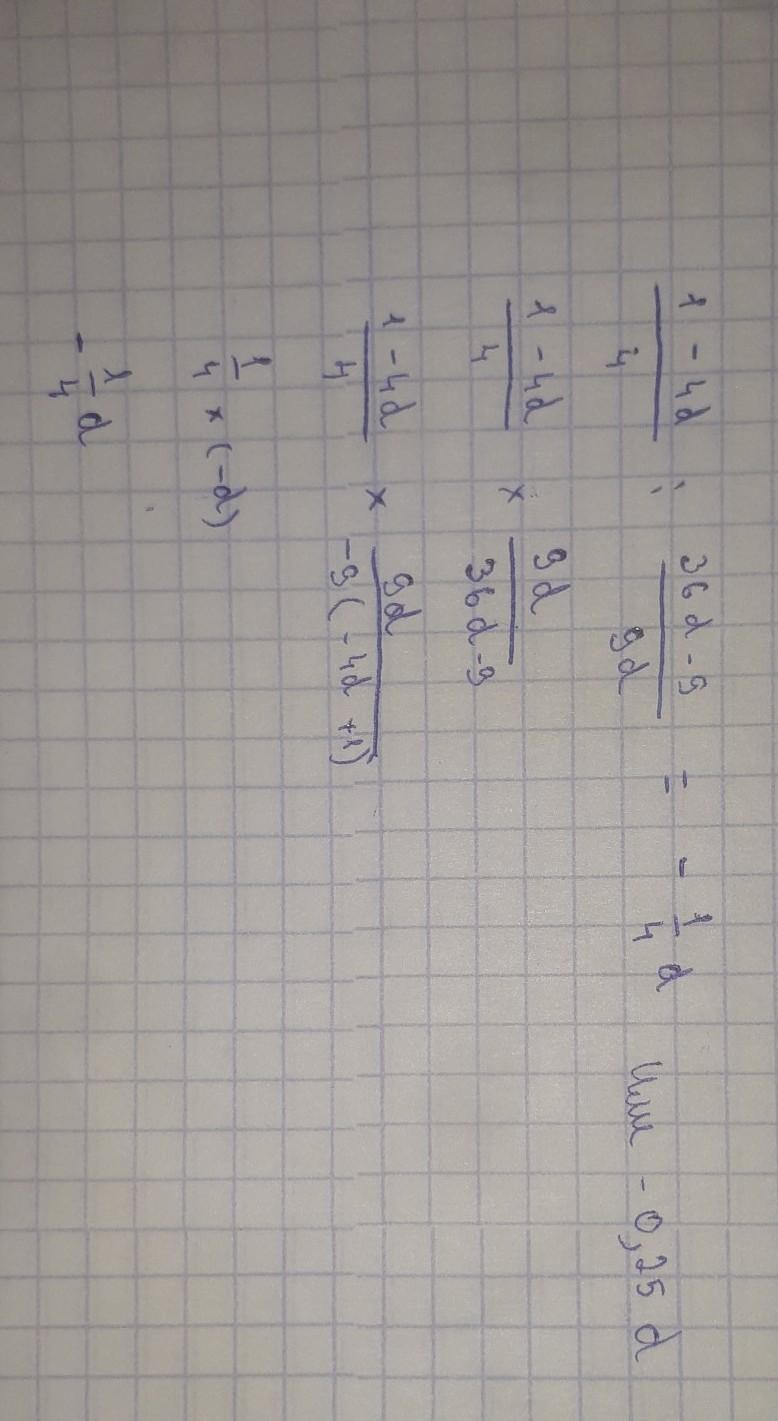 1 - 4d / 4 : 36d - 9 / 9d = - 1/4 d или - 0,25 d
1 - 4d / 4 × 9d / 36d - 9
1 - 4d / 4 × 9d / -9( - 4d + 1)
1/4 × (-d)
- 1/4 d